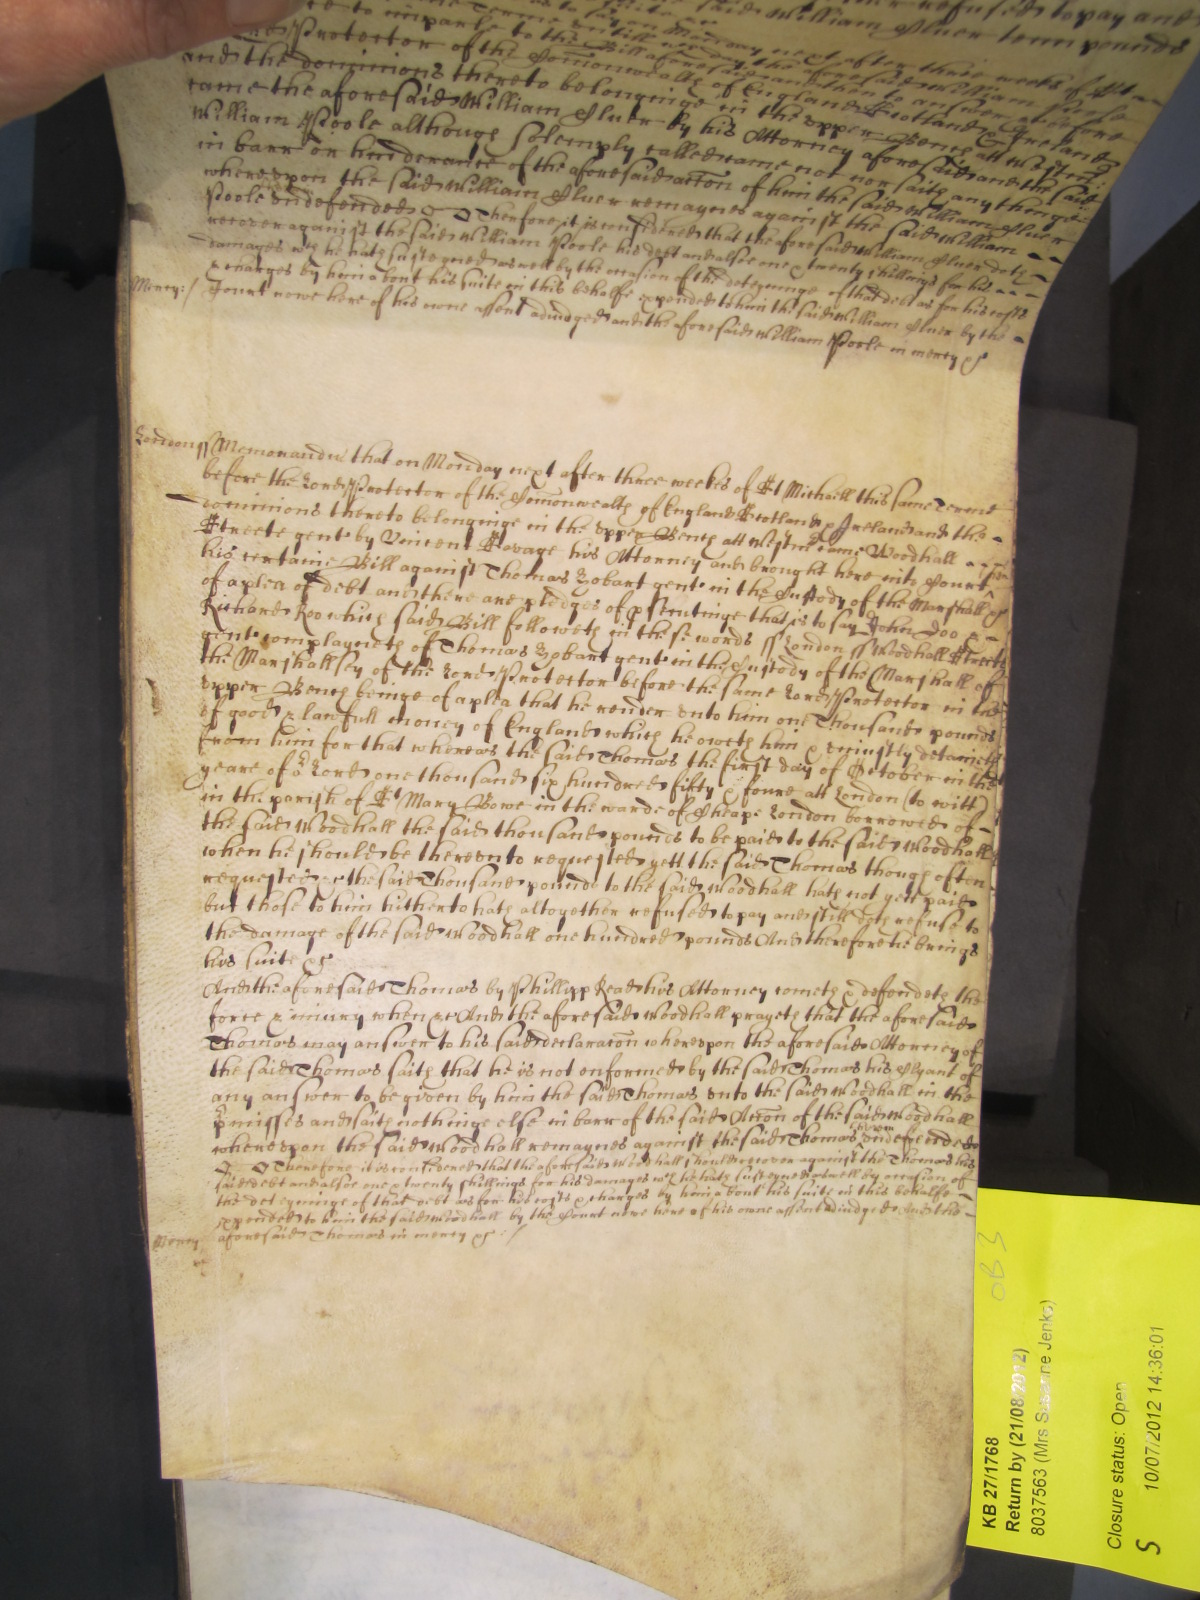 refused to pay and
said William Iluer tenn pounds
to imparle to the Bill aforesaid and then to answer
Monday next after three weekes of St
Lord Protector of the Comonwealth of England Scotland & Ireland
and the dominions thereto belonginge in the upper Bench att Westmr
came the aforesaid William Iluer by his Attorney aforesaid and the said
William Poole although solemply called came not nor saith any thinge
in barr or hinderance of the aforesaid accon of him the said William Iluer
whereupon the said William Iluer remaynes against the said William
Poole undefended Therfore it is considered that the aforesaid William Iluer doth
recover against the said William Poole his debt and alsoe one & twenty shillings for his
damages wch he hath susteyned aswell by the occasion of the deteyninge of that debt as for his costs
& charges by him about his suite in this behalfe expended to him the said William Iluer by the
Mercy:/ Court nowe here of his owne assent adiudged and the aforesaid William Poole in mercy &c
London ss Memorandu that on Monday next after three weekes of St Michaell this same Terme
before the Lord Protector of the Comonwealth of England Scotland & Ireland and the
dominions thereto belonginge in the upper Bench att Westmr came Woodhall
Streete gent by Vincent Savage his Attorney and brought here into Court
his certaine Bill against Thomas Hobart gent in the Custody of the Marshall &c
of a plea of debt and there are pledges of psentinge that is to say John Doo &
Richard Roo which said Bill followeth in these words ss London ss Woodhall Streete
gent complayneth of Thomas Hobart gent in the Custody of the Marshall of
the Marshallsey of the Lord Protector before the same Lord Protector in the
upper Bench beinge of a plea that he render unto him one Thousand pounds
of good & lawfull money of England which he oweth him & uniustly detaineth
from him for that whereas the said Thomas the first day of October in the
yeare of or Lord one thousand six hundred fifty & foure att London (to witt)
in the parish of St Mary Bowe in the warde of Cheape London borrowed of
the said Woodhall the said thousand pounds to be paid to the said Woodhall
when he should be thereunto requested yett the said Thomas though often
requested &c the said Thousand pounds to the said Woodhall hath not yett paid
but those to him hitherto hath altogether refused to pay and still doth refuse to
the damage of the said Woodhall one hundred pounds And therefore he brings
his suite &c
And the aforesaid Thomas by Phillipp Read his Attorney cometh & defendeth the
force & iniury when &c And the aforesaid Woodhall prayeth that the aforesaid
Thomas may answer to his said declaracon whereupon the aforesaid Attorney of
the said Thomas saith that he is not enformed by the said Thomas his Clyant of
any answer to be given by him the said Thomas unto the said Woodhall in the
pmisses and saith nothinge else in barr of the said Accon of the said Woodhall
whereupon the said Woodhall remaynes against the said Thomas therein undefended
Therefore it is considered that the aforesaid Woodhall should recover against the Thomas his
said debt and alsoe one & twenty shillings for his damages wch he hath susteyned aswell by occasion of
the deteyninge of that debt as for his costs & charges by him about his suite in this behalfe
expended to him the said Woodhall by the Court nowe here of his owne assent adiudged And the
Mercy aforesaid Thomas in mercy &c :/
OB 3
KB 27/1768
Return by (21/08/2012)
8037563 (Mrs Susanne Jenks)
Closure status: Open
S 10/07/2012 14:36:01